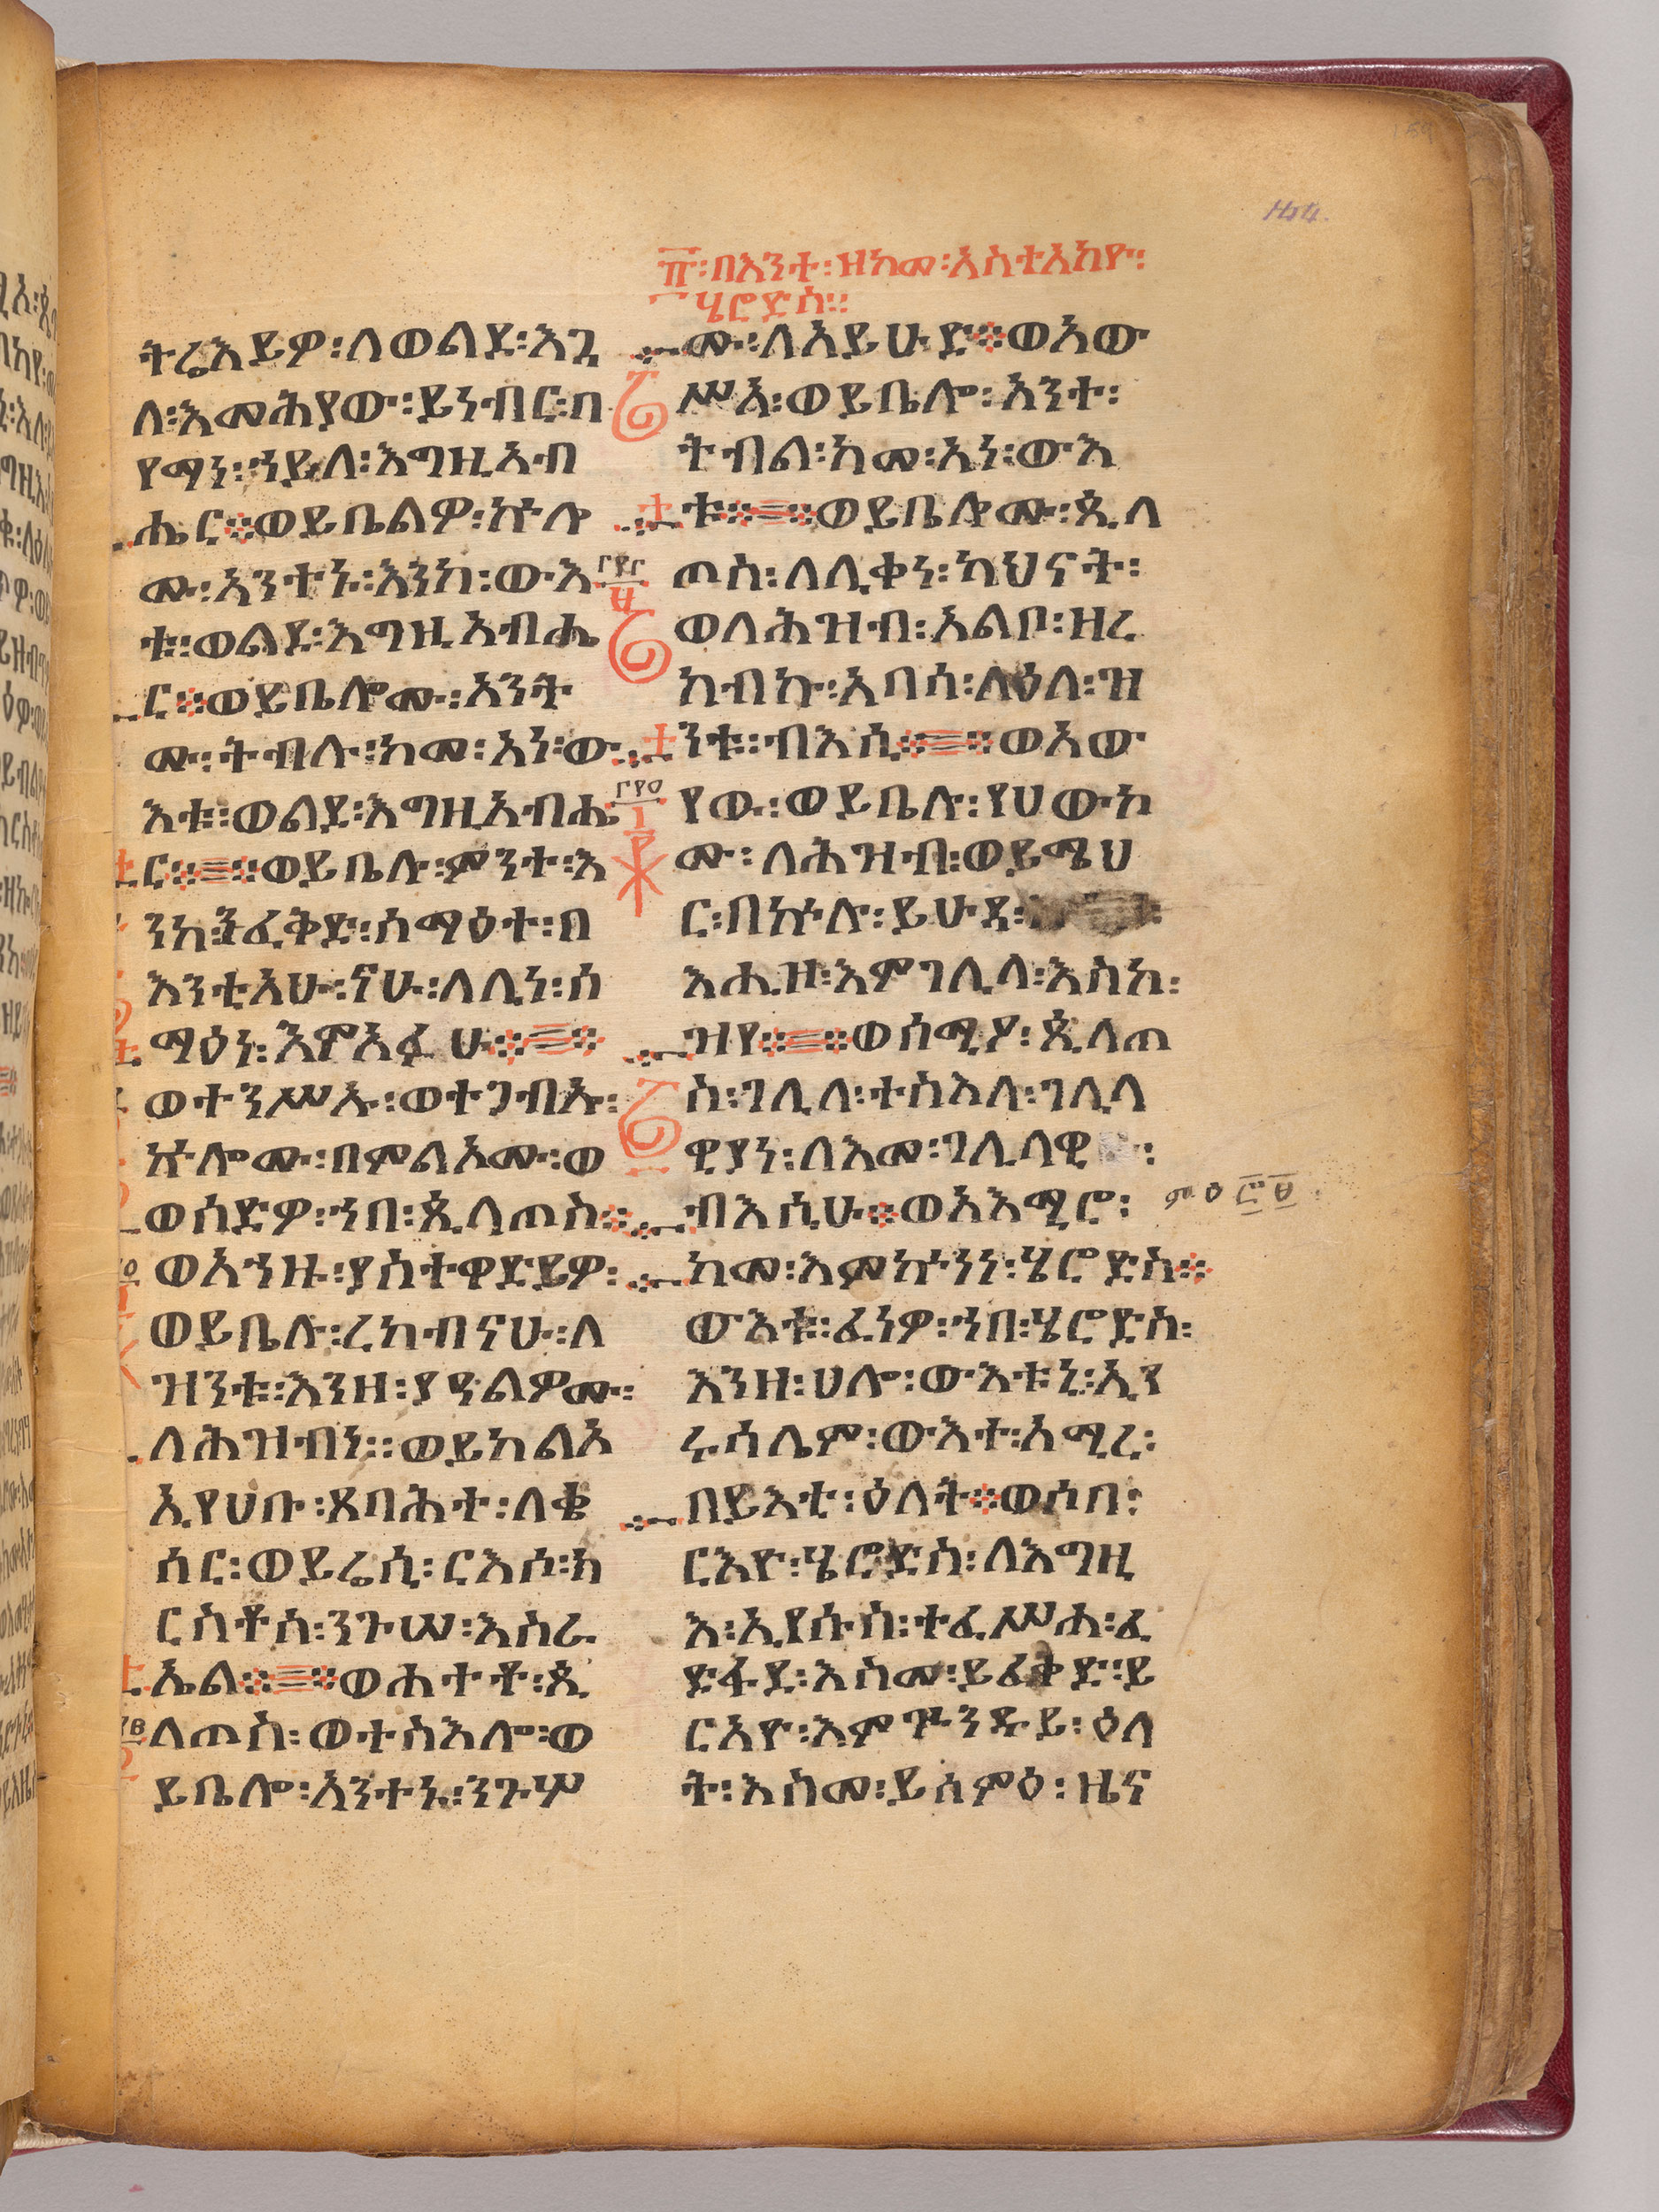 ትሬእይዎ፡ለወልደ፡እጓ
ለ፡እመሕያው፡ይነብር፡በ
የማነ፡ኀይለ፡እግዚአብ
ሔር፨ወይቤልዎ፡ኵሎ
ሙ፡አንተኑ፡እንከ፡ውእ
ቱ፡ወልደ፡እግዚአብሔ
ር፨ወይቤሎሙ፡አንት
ሙ፡ትብሉ፡ከመ፡አነ፡ው
እቱ፡ወልደ፡እግዚአብሔ
ር፨ወይቤሉ፡ምንተ፡እ
ንከ፡ንፈቅድ፡ስማዕተ፡በ
እንቲአሁ፡ናሁ፡ለሊነ፡ሰ
ማዕነ፡እምአፉሁ፨
ወተንሥኡ፡ወተጋብኡ፡
ኵሎሙ፡በምልኦሙ፡ወ
ወሰድዎ፡ኀበ፡ጲላጦስ፨
ወአኀዙ፡ያስተዋድይዎ፡
ወይቤሉ፡ረከብናሁ፡ለ
ዝንቱ፡እንዘ፡ያዐልዎሙ፡
ለሕዝብነ፡፡ወይከልእ
ኢየሀቡ፡ጸባሕተ፡ለቄ
ሰር፡ወይሬሲ፡ርእሶ፡ክ
ርስቶስ፡ንጉሠ፡እስራ
ኤል፨ወሐተቶ፡ጲ
ላጦስ፡ወተስእሎ፡ወ
ይቤሎ፡አንተኑ፡ንጉሦ
፹፡በእንተ፡ዘከመ፡አስተአከዮ፡
ሄሮድስ፡፡
ሙ፡ለአይሁድ፨ወአው
ሥአ፡ወይቤሎ፡አንተ፡
ትብል፡ከመ፡አነ፡ውእ
ቱ፨ወይቤሎሙ፡ጲላ
ጦስ፡ለሊቀነ፡ካህናት፡
ወለሕዝብ፡አልቦ፡ዘረ
ከብኩ፡አባሳ፡ላዕለ፡ዝ
ንቱ፡ብእሲ፨ወአው
የዉ፡ወይቤሉ፡የሀውኮ
ሙ፡ለሕዝብ፡ወይሜህ
ር፡በኵሉ፡ይሁዳ፡
እሒዞ፡እምገሊላ፡እስከ፡
ዝየ፨ወሰሚዖ፡ጲላጦ
ስ፡ገሊላ፡ተስእለ፡ገሊላ
ዊያነ፡ለእመ፡ገሊላዊ፡
ብእሲሁ፨ወአእሚሮ፡
ከመ፡እምኵነነ፡ሄሮድስ፨
ውእቱ፡ፈነዎ፡ኀበ፡ሄሮድስ፡
እንዘ፡ሀሎ፡ውእቱኒ፡ኢየ
ሩሳሌም፡ውእተ፡አሚረ፡
በይእቲ፡ዕለት፨ወሶበ፡
ርእዮ፡ሄሮድስ፡ለእግዚ
እ፡ኢየሱስ፡ተፈሥሐ፡ፈ
ድፋደ፡እስመ፡ይፈቅድ፡ይ
ርአዮ፡እምጕንዱይ፡ዕለ
ት፡እስመ፡ይሰምዕ፡ዜና